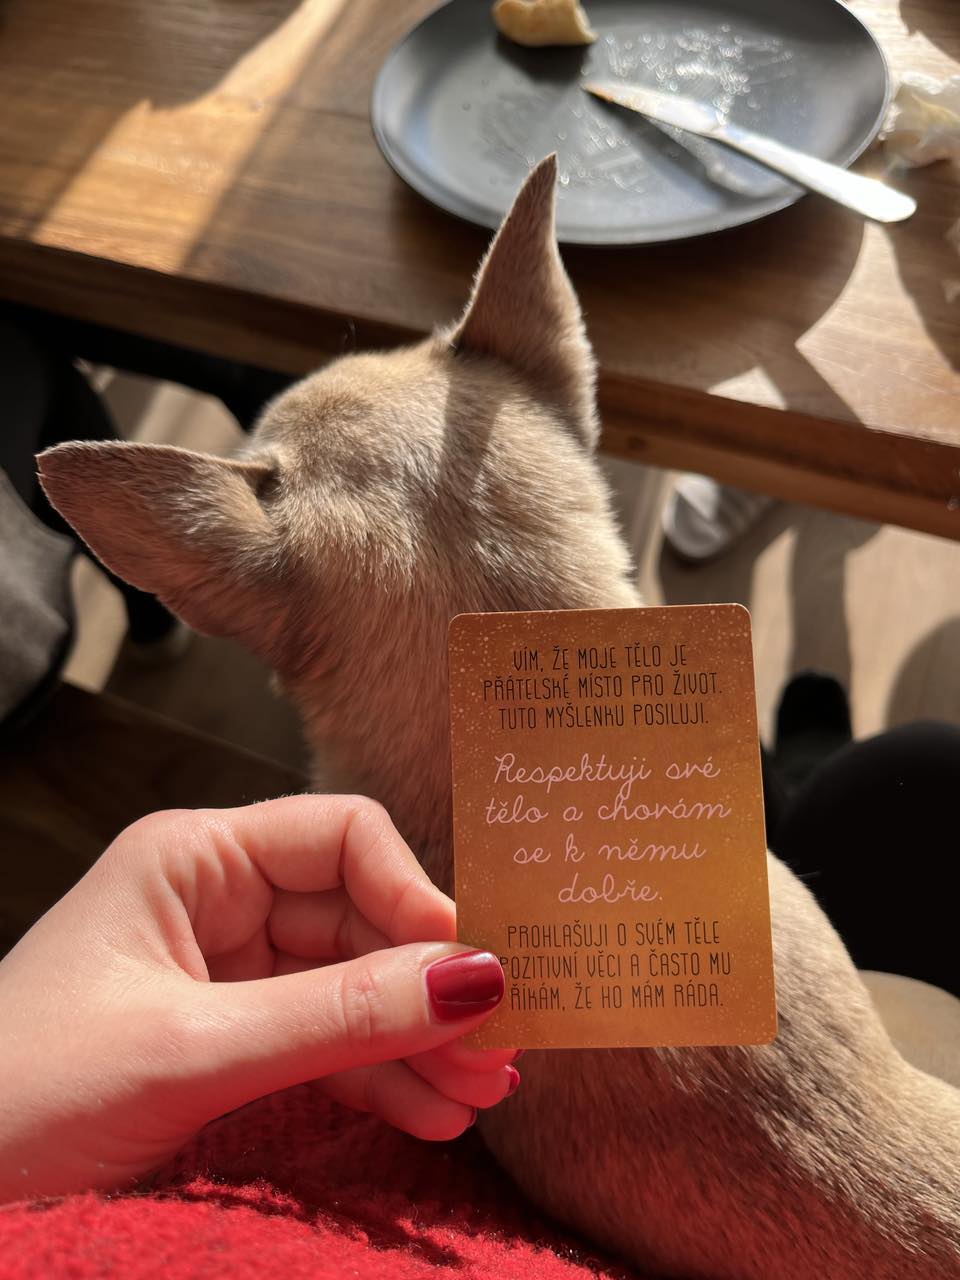 VÍM, ŽE MOJE TĚLO JE
PŘÁTELSKÉ MÍSTO PRO ŽIVOT.
TUTO MYŠLENKU POSILUJI.
Respektuji své
tělo a chovám
se k němu
dobře.
PROHLAŠUJI O SVÉM TĚLE
POZITIVNÍ VĚCI A ČASTO MU
ŘÍKÁM, ŽE HO MÁM RÁDA.